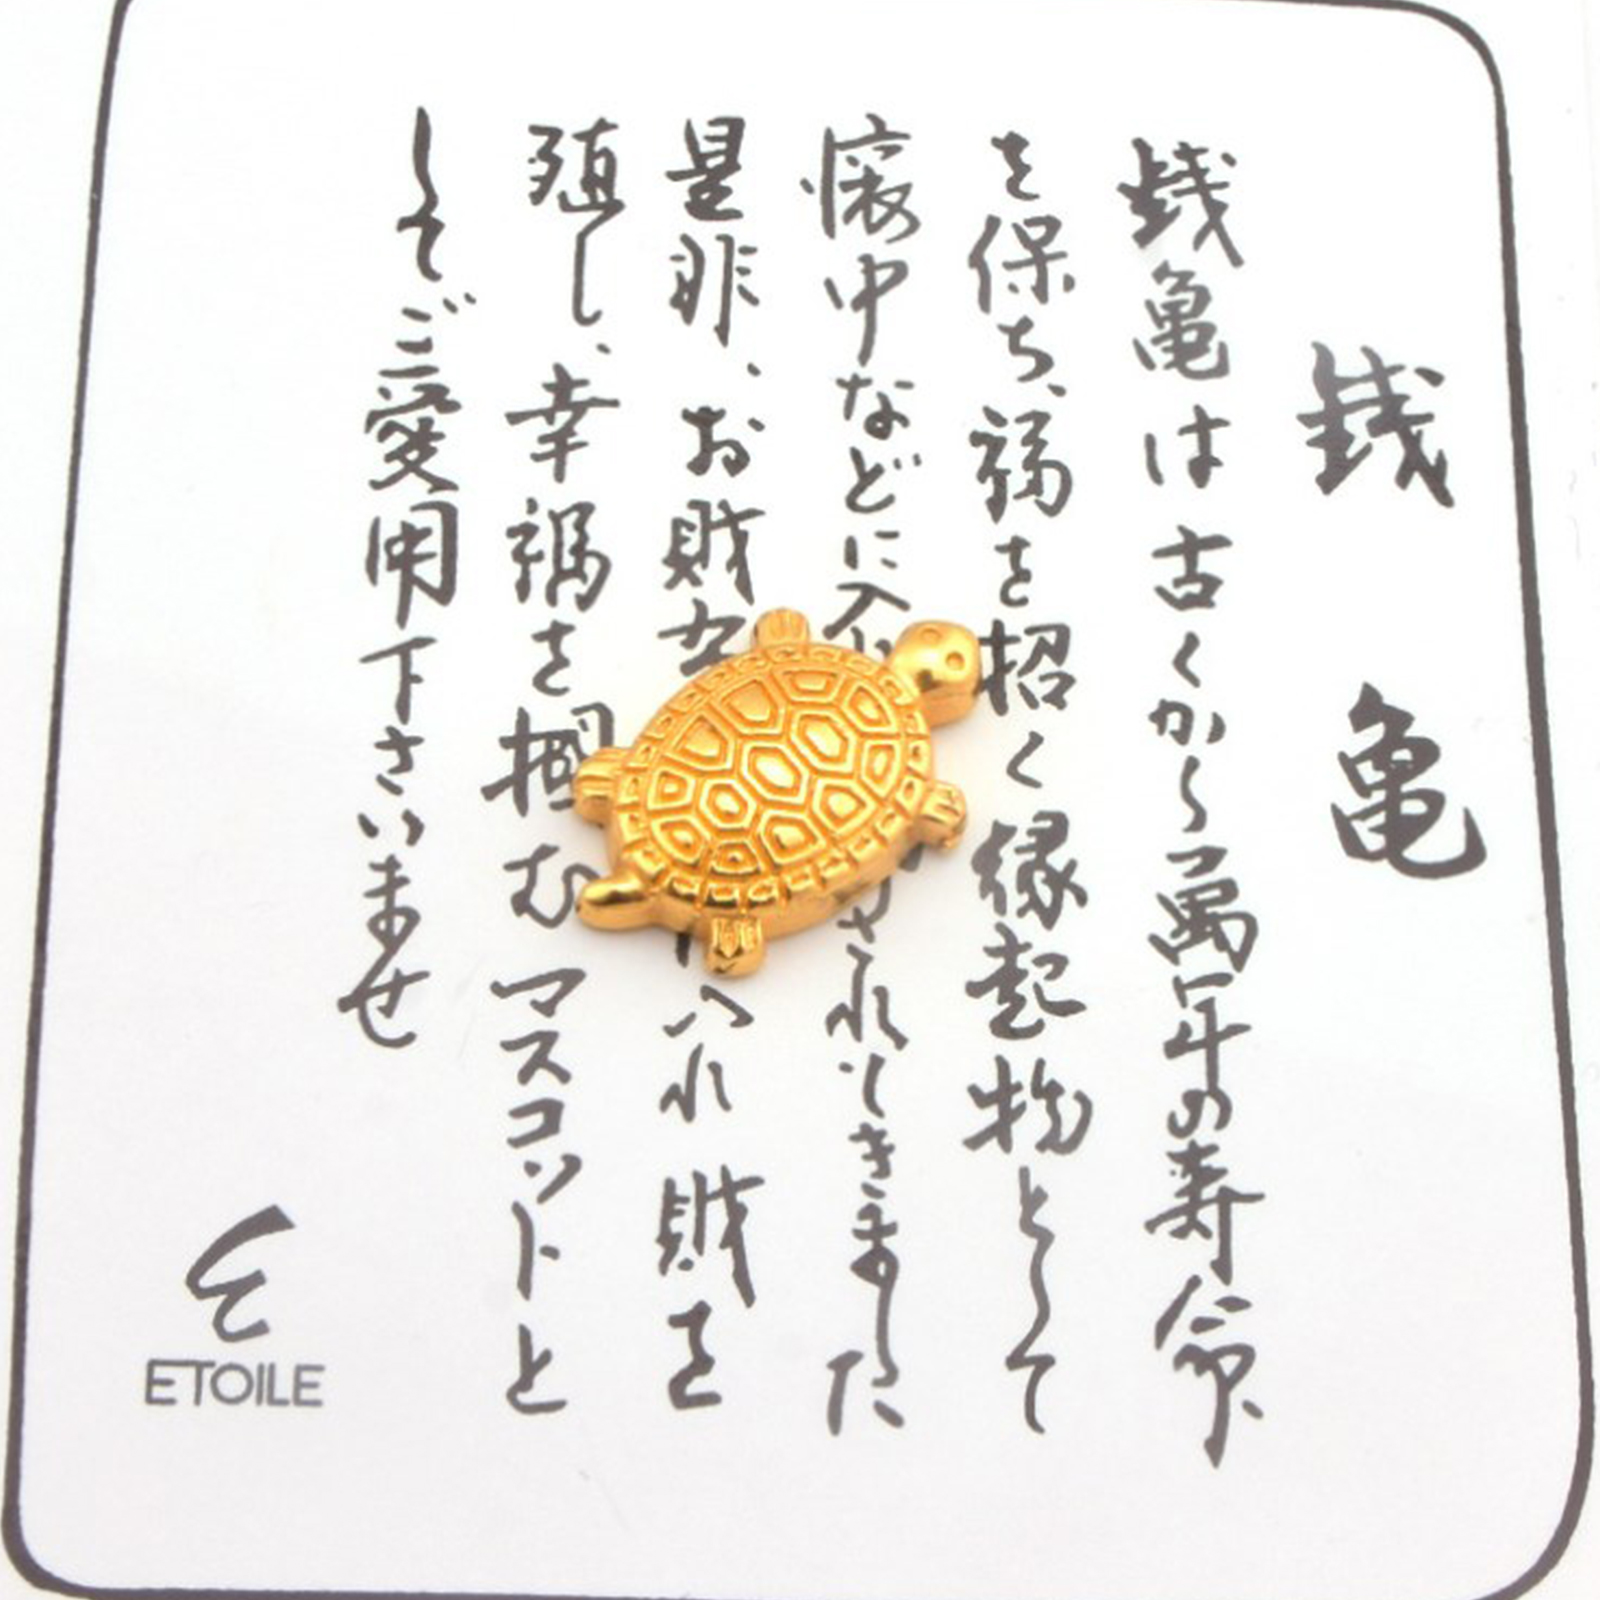 銭亀
銭亀は古くから萬年の寿命
を保ち、福を招く縁起物として
懐中などに入 されてきました
是非、お財布 へ入れ財を
殖し、幸福を掴むマスコットと
してご愛用下さいませ
ETOILE